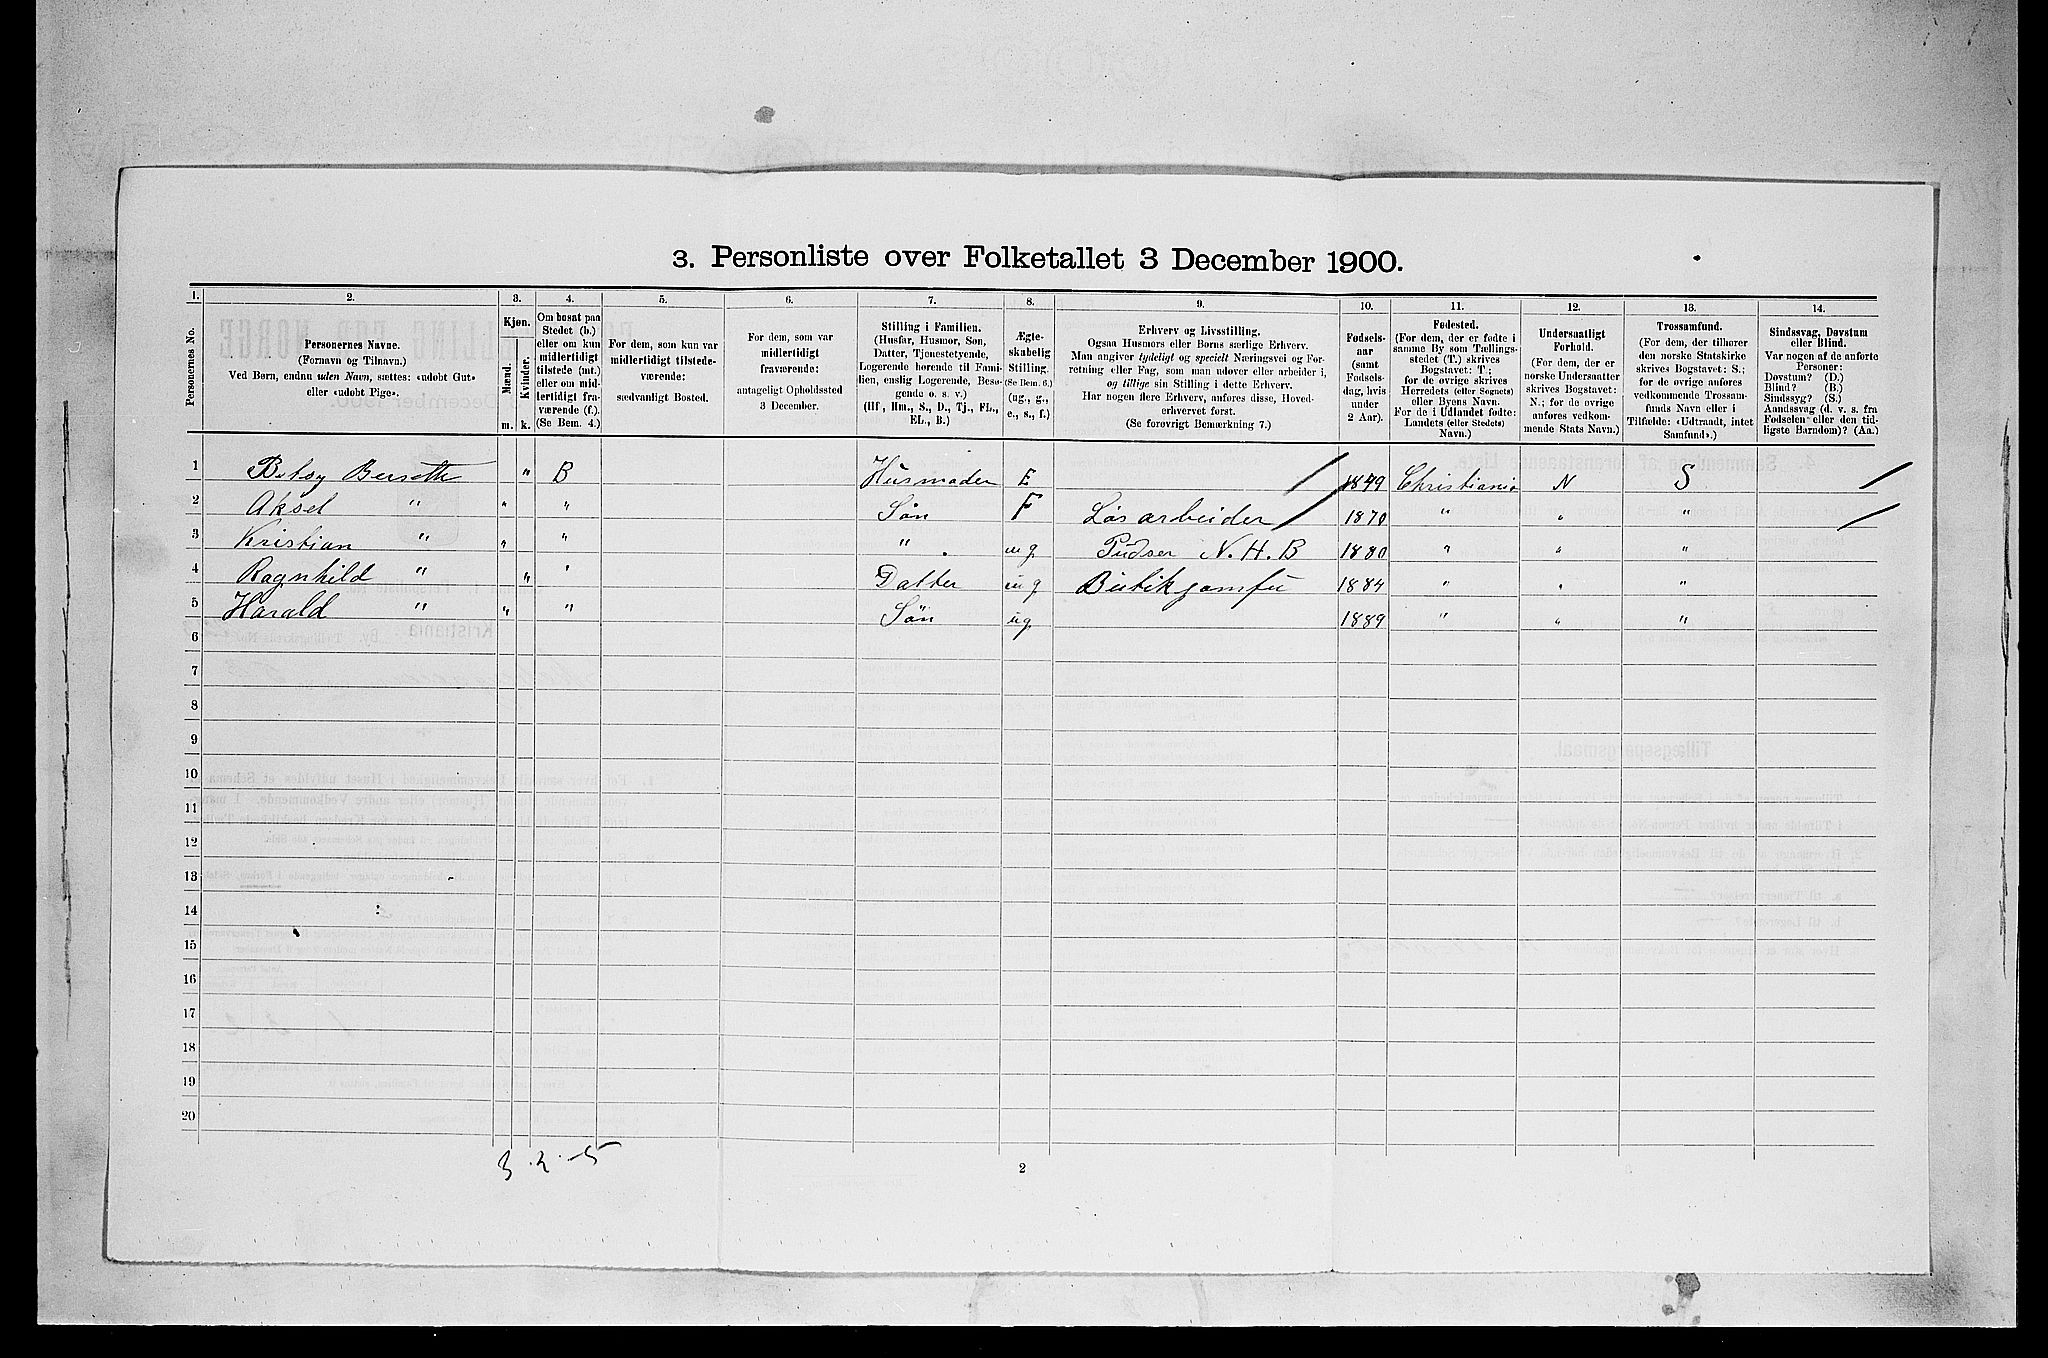 3. Personliste over Folketallet 3 December 1900.
1. 2. 3. 4. 5. 6. 7. 8. 9. 10. 11. 12. 13. 14.
Personernes No.
Personernes Navne.
(Fornavn og Tilnavn.)
Ved Børn, endnu uden Navn, sættes: «udøbt Gut»
eller «udøbt Pige».
Kjøn.
Mænd.
Kvinder.
m. k.
Om bosat paa
Stedet (b.)
eller om kun
midlertidigt
tilstede (mt.)
eller om mid-
lertidigt fra-
værende (f.).
(Se Bem. 4.)
For dem, som kun var
midlertidigt tilstede-
værende:
sædvanligt Bosted.
For dem, som var
midlertidigt
fraværende:
antageligt Opholdssted
3 December.
Stilling i Familien.
(Husfar, Husmor, Søn,
Datter, Tjenestetyende,
Logerende hørende til Fami-
lien, enslig Logerende, Besø-
gende o. s. v.)
(Hf, Hm., S., D., Tj., FL.,
EL., B.)
Ægte-
skabelig
Stilling.
(Se Bem. 6.)
(ug., g.,
e., s., f.)
Erhverv og Livsstilling.
Ogsaa Husmors eller Børns særlige Erhverv.
Man angiver tydeligt og specielt Næringsvei og For-
retning eller Fag, som man udøver eller arbeider i,
og tillige sin Stilling i dette Erhverv.
Har nogen flere Erhverv, anføres disse, Hoved-
erhvervet først.
(Se forøvrigt Bemærkning 7.)
Fødsels-
aar
(samt
Fødsels-
dag, hvis
under
2 Aar).
Fødested.
(For dem, der er fødte i
samme By som Tællings-
stedet (T.) skrives
Bogstavet: T;
for de øvrige skrives
Herredets (eller Sognets)
eller Byens Navn.
For de i Udlandet fødte:
Landets (eller Stedets)
Navn.)
Undersaatligt
Forhold.
(For dem, der er
norske Undersaatter
skrives Bogstavet:
N.; for de øvrige
anføres vedkom-
mende Stats Navn.)
Trossamfund.
(For dem, der tilhører
den norske Statskirke
skrives Bogstavet: S.;
for de øvrige anføres
vedkommende Trossam-
funds Navn eller i
Tilfælde: «Udtraadt, intet
Samfund».)
Sindssvag, Døvstum
eller Blind.
Var nogen af de anførte
Personer:
Døvstum? (D.)
Blind? (B.)
Sindssyg? (S.)
Aandssvag (d. v. s. fra
Fødselen eller den tid-
ligste Barndom)? (Aa.)
1 Betsy Berseth " B Husmoder E 1849 Christiania N S
2 Aksel " " " Søn F Løsarbeider 1870 " " "
3 Kristian " " " " ug Pudser N. H. B 1880 " " "
4 Ragnhild " " " Datter ug Butikjomfu 1884 " " "
5 Harald " " " Søn ug. 1889 " " "
6
7
8
9
10
11
12
13
14
15
16
17
18
19
20
3 . 2 . -5
2